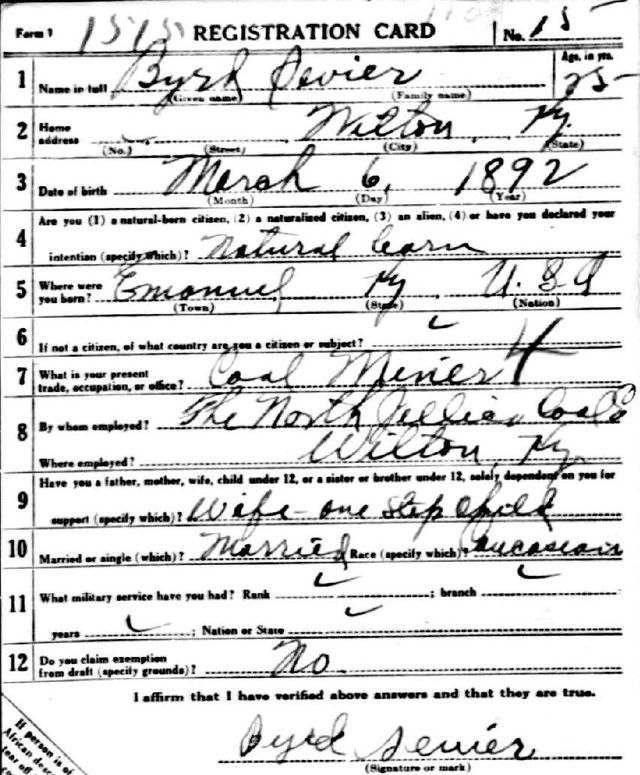 Form 1 1515 REGISTRATION CARD No. 15
1 Name in full Byrd Sevier Age, in yrs. 25
(Given name) (Family name)
2 Home address Wilton, Ky
(No.) (Street) (City) (State)
3 Date of birth March 6, 1892
(Month) (Day) (Year)
4 Are you (1) a natural-born citizen, (2) a naturalized citizen, (3) an alien, (4) or have you declared your
intention (specify which)? Natural born
5 Where were you born? Emanuel Ky U. S. A
(Town) (State) (Nation)
6 If not a citizen, of what country are you a citizen or subject?
7 What is your present trade, occupation, or office? Coal Minier 4
8 By whom employed? The North Jellico Coal Co
Where employed? Wilton, Ky
9 Have you a father, mother, wife, child under 12, or a sister or brother under 12, solely dependent on you for
support (specify which)? Wife - one step child
10 Married or single (which)? Married Race (specify which)? Caucasian
11 What military service have you had? Rank ; branch
years ; Nation or State
12 Do you claim exemption from draft (specify grounds)? No
I affirm that I have verified above answers and that they are true.
Byrd Sevier
(Signature or mark)
If person is of
African
tear off